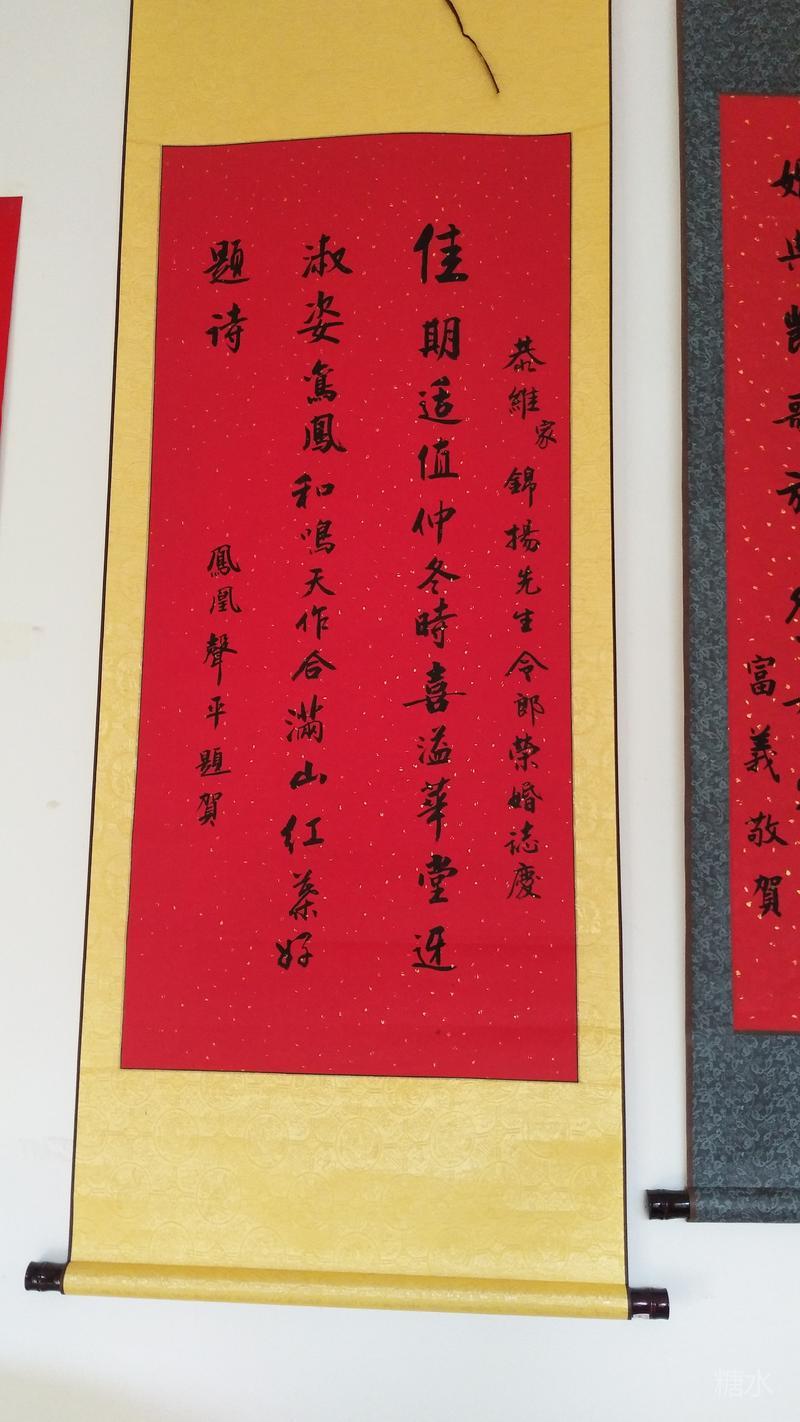 富義敬賀
恭維家錦揚先生令郎榮婚誌慶
佳期适值仲冬時喜溢華堂迓
淑姿鸾鳳和鳴天作合滿山红葉好
题诗
鳳凰聲平題賀
糖水